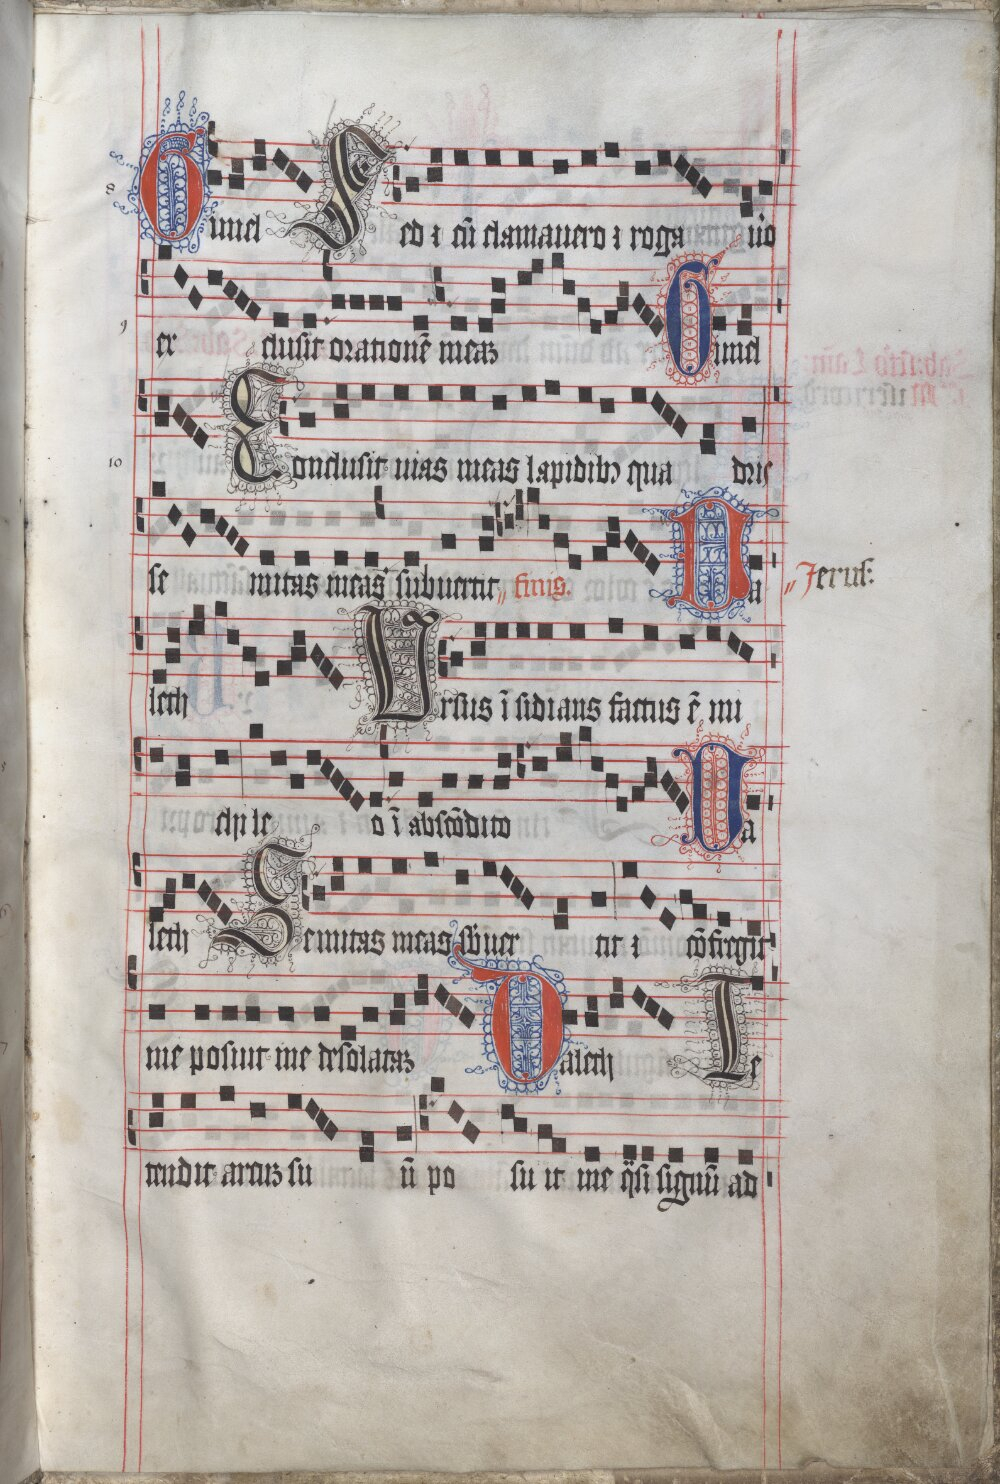 8 Gimel Sed ⁊ cū clamauero ⁊ rogauo
9 er clusit orationē meaꝫ Gimel
10 Conclusit uias meas lapidibꝫ quadris
se mitas meas subuertit finis. Da
Jerusː
leth Vrsus ī sidians factus ē mi
chi le o ī abscōdito Da
leth Semitas meas sbuer tit ⁊ cōfregit
me posuit me desolataꝫ Daleth Te
tendit arcuꝫ su ū po su it me q̄si signū ad